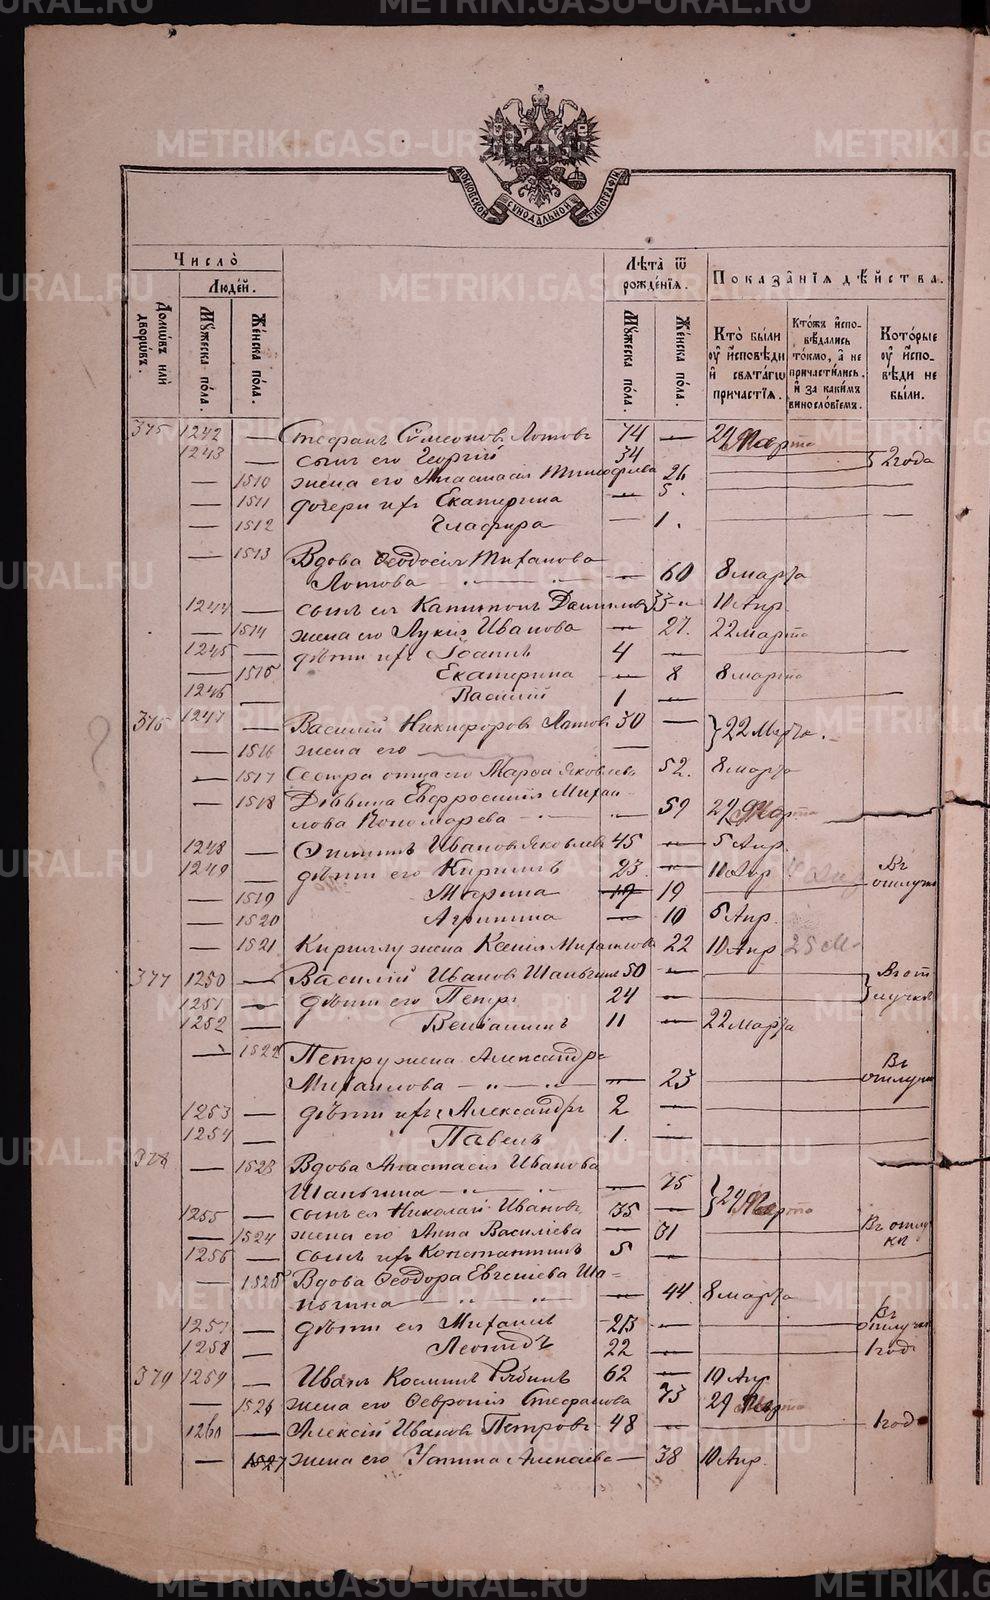 METRIKI.GASO-URAL.RU
МОСКОВСКОЙ СѴНОДАЛЬНОЙ ТИПОГРАФІИ
Число̀
Людéй.
Домѡ́въ илѝ дворѡ́въ.
Мꙋ́жеска по́ла.
Же́нска по́ла.
Лѣ́та ѿ рожде́нїѧ.
Мꙋ́жеска по́ла.
Же́нска по́ла.
Показа̑нїѧ дѣ́йства.
Кто̀ бы́ли ᲂу҆ и҆сповѣ́ди и҆ свѧта́гѡ прича́стїѧ.
Кто́жъ и҆сповѣ́дались то́кмѡ, а҆ не причасти́лись, и҆ за каки́мъ винослѡ́вїемъ.
Кото́рые ᲂу҆ и҆сповѣ́ди не бы́ли.
375 1242 — Стефанъ Сѵмеоновъ Лотовъ 74 — 29 Марта
1243 — сынъ его Георгій 34 2 года
— 1510 жена его Анастасія Тимофѣева 26
— 1511 дочери ихъ Екатерина — 5.
— 1512 Глафира — 1.
— 1513 Вдова Ѳеодосія
Лотова — " — " — 60 8 марта
1244 — сынъ ея Капитонъ Даниловъ 33 — 10 Апр.
— 1514 жена его Лукія Иванова — 27. 22 марта
1245 — дѣти ихъ Іоаннъ 4 — — —
— 1515 Екатерина — 8 8 марта
1246 — Василій 1 — — —
376 1247 — Василій Никифоровъ Лотовъ 30 — 22 Марта.
— 1516 жена его — —
— 1517 Сестра отца его Марѳа Яковлева 52. 8 марта
— 1518 Дѣвица Евфросинія Михаи-
лова Пономарева — " — 59 29 Марта
1248 — Иванов Яковлев 45 — 5 Апр.
1249 — дѣти его Кириллъ 23. — 10 Апр Въ отлучкѣ
— 1519 Марина 19 19
— 1520 Агрипина — 10 5 Апр.
— 1521 Кириллу жена Ксенія Михайлова 22 10 Апр 25 М
377 1250 — Василій Иванов Шаньгинъ 50 — Въ от
1251 — дѣти его Петръ 24 — лучкѣ
1252 — Веніаминъ 11 — 22 марта
— 1522 Петру жена Александра
Михаилова — " — " — 23 Въ отлучкѣ
1253 — дѣти ихъ Александръ 2 —
1254 — Павелъ 1. —
378 — 1523 Вдова Анастасія Иванова
Шаньгина — " — " — 75 29 Марта
1255 — сынъ ея Николай Ивановъ 35 —
— 1524 жена его Анна Василіева — 31 Въ отлуч
1256 — сынъ ихъ Константинъ 5 — кѣ
— 1525 Вдова Ѳеодора Евгеніева Ша=
ньгина — " — " — 44 8 марта
1257 — дѣти ея Михаилъ 23 — Въ отлучкѣ
1258 — Леонидъ 22 — 1 годъ
379 1259 — Иванъ Косминъ Рябинъ 62 — 10 Апр
— 1526 жена его Февронія Стефанова 73 29 Марта
1260 — Алексій Иванов Петровъ 48 — 1 годъ
— 1527 жена его — 38 10 Апр.